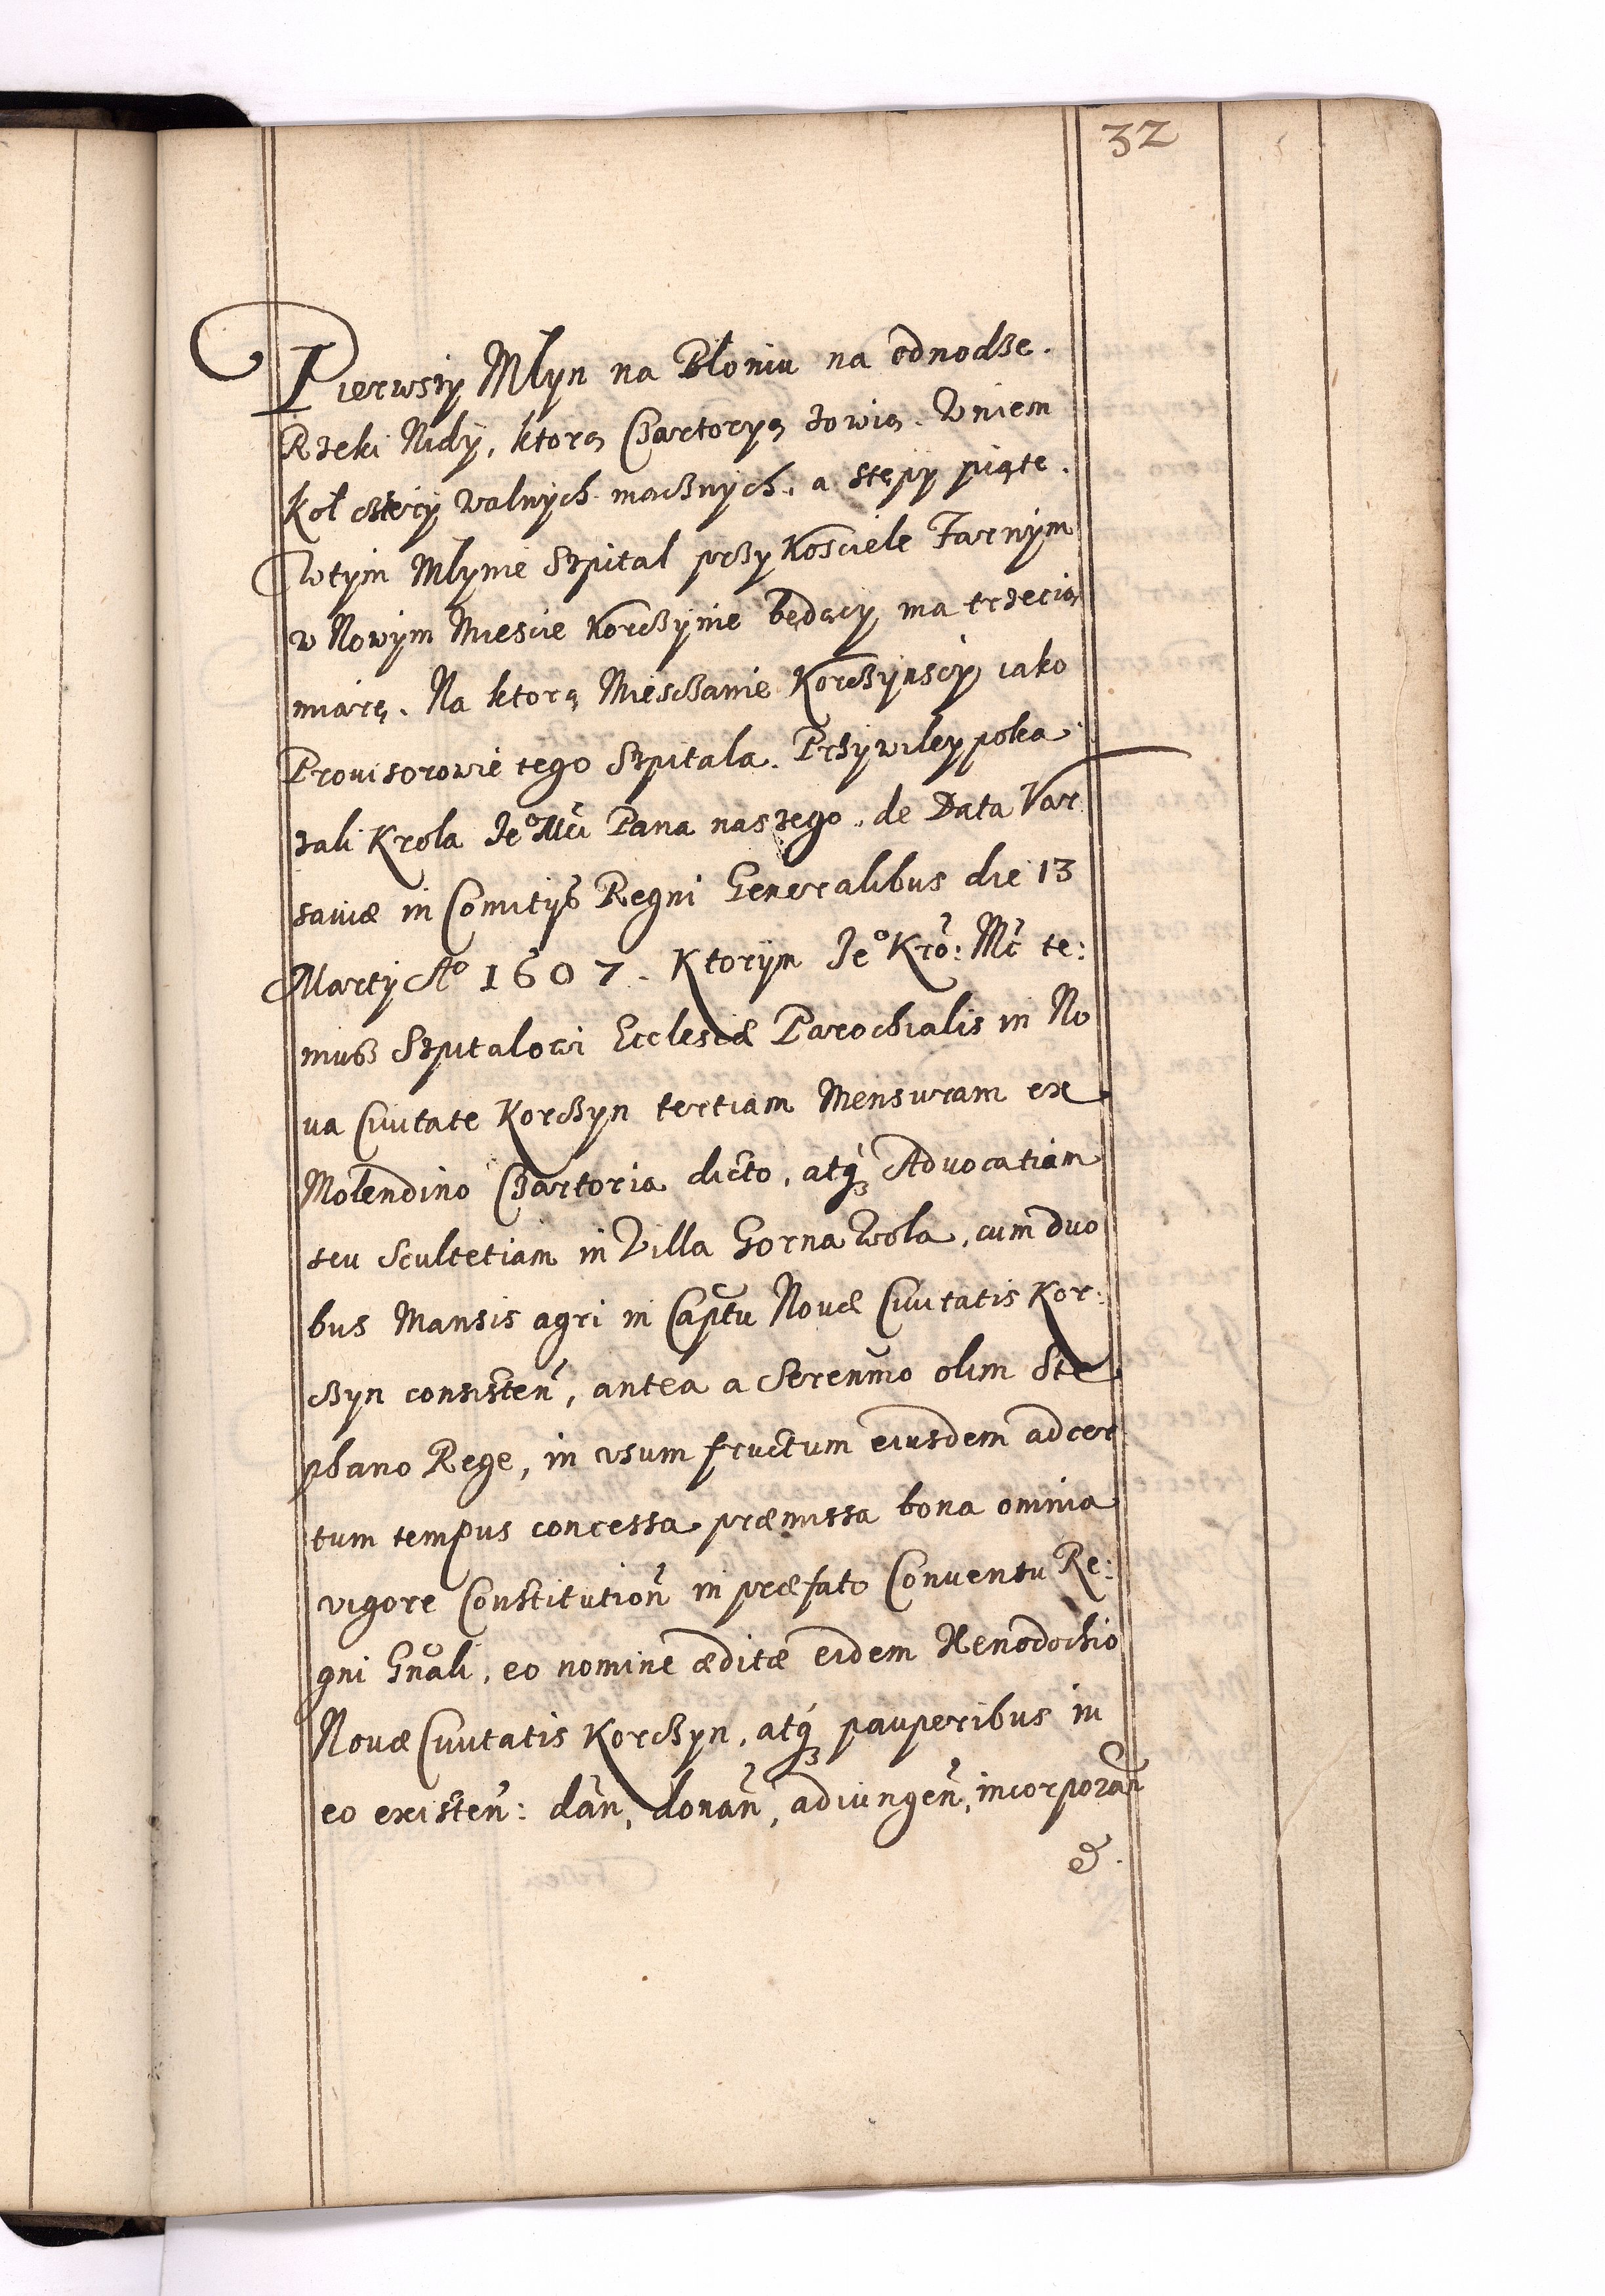 32
Pierwszy Młyn na Błoniu na odnodze.
Rzeki Nidy, ktorą Czartoryą zowią. Wniem
koł cztery walnych mącznych, a stępy piąte.
Wtym Młynie Szpital przy Kosciele Farnym
w Nowym Miescie Korczynie będący ma trzecią
miarę. Na ktorą Miesczanie Korczynscy iako
Prouisorowie tego Szpitala. Przywiley poka
zali Krola Jeº Mći Pana naszego. de Data Var
sauiæ in Comitÿs Regni Generalibus die 13
Martÿ Aº 1607. Ktorym Jeº Kro: Mć te:
muß Szpitalowi Ecclesiæ Parochialis in No
ua Ciuitate Korczyn tertiam Mensuram ex
Molendino Czartoria dicto, atq̃ Advocatiam
seu Scultetiam in Villa Gorna Wola, cum duo
bus Mansis agri in Capĩtu Nouæ Ciuitatis Kor:
czyn consisteñ, antea a Sereñmo olim Ste
phano Rege, in vsum fructum eiusdem ad cer
tum tempus concessa præmissa bona omnia
vigore Constitutioñ in præfato Conuentu Re:
gni Gñali, eo nomine æditæ eidem Xenodochio
Nouæ Ciuitatis Korczyn, atq̃ pauperibus in
eo existeñ: dañ, donañ, adiungeñ, incorporañ
&.